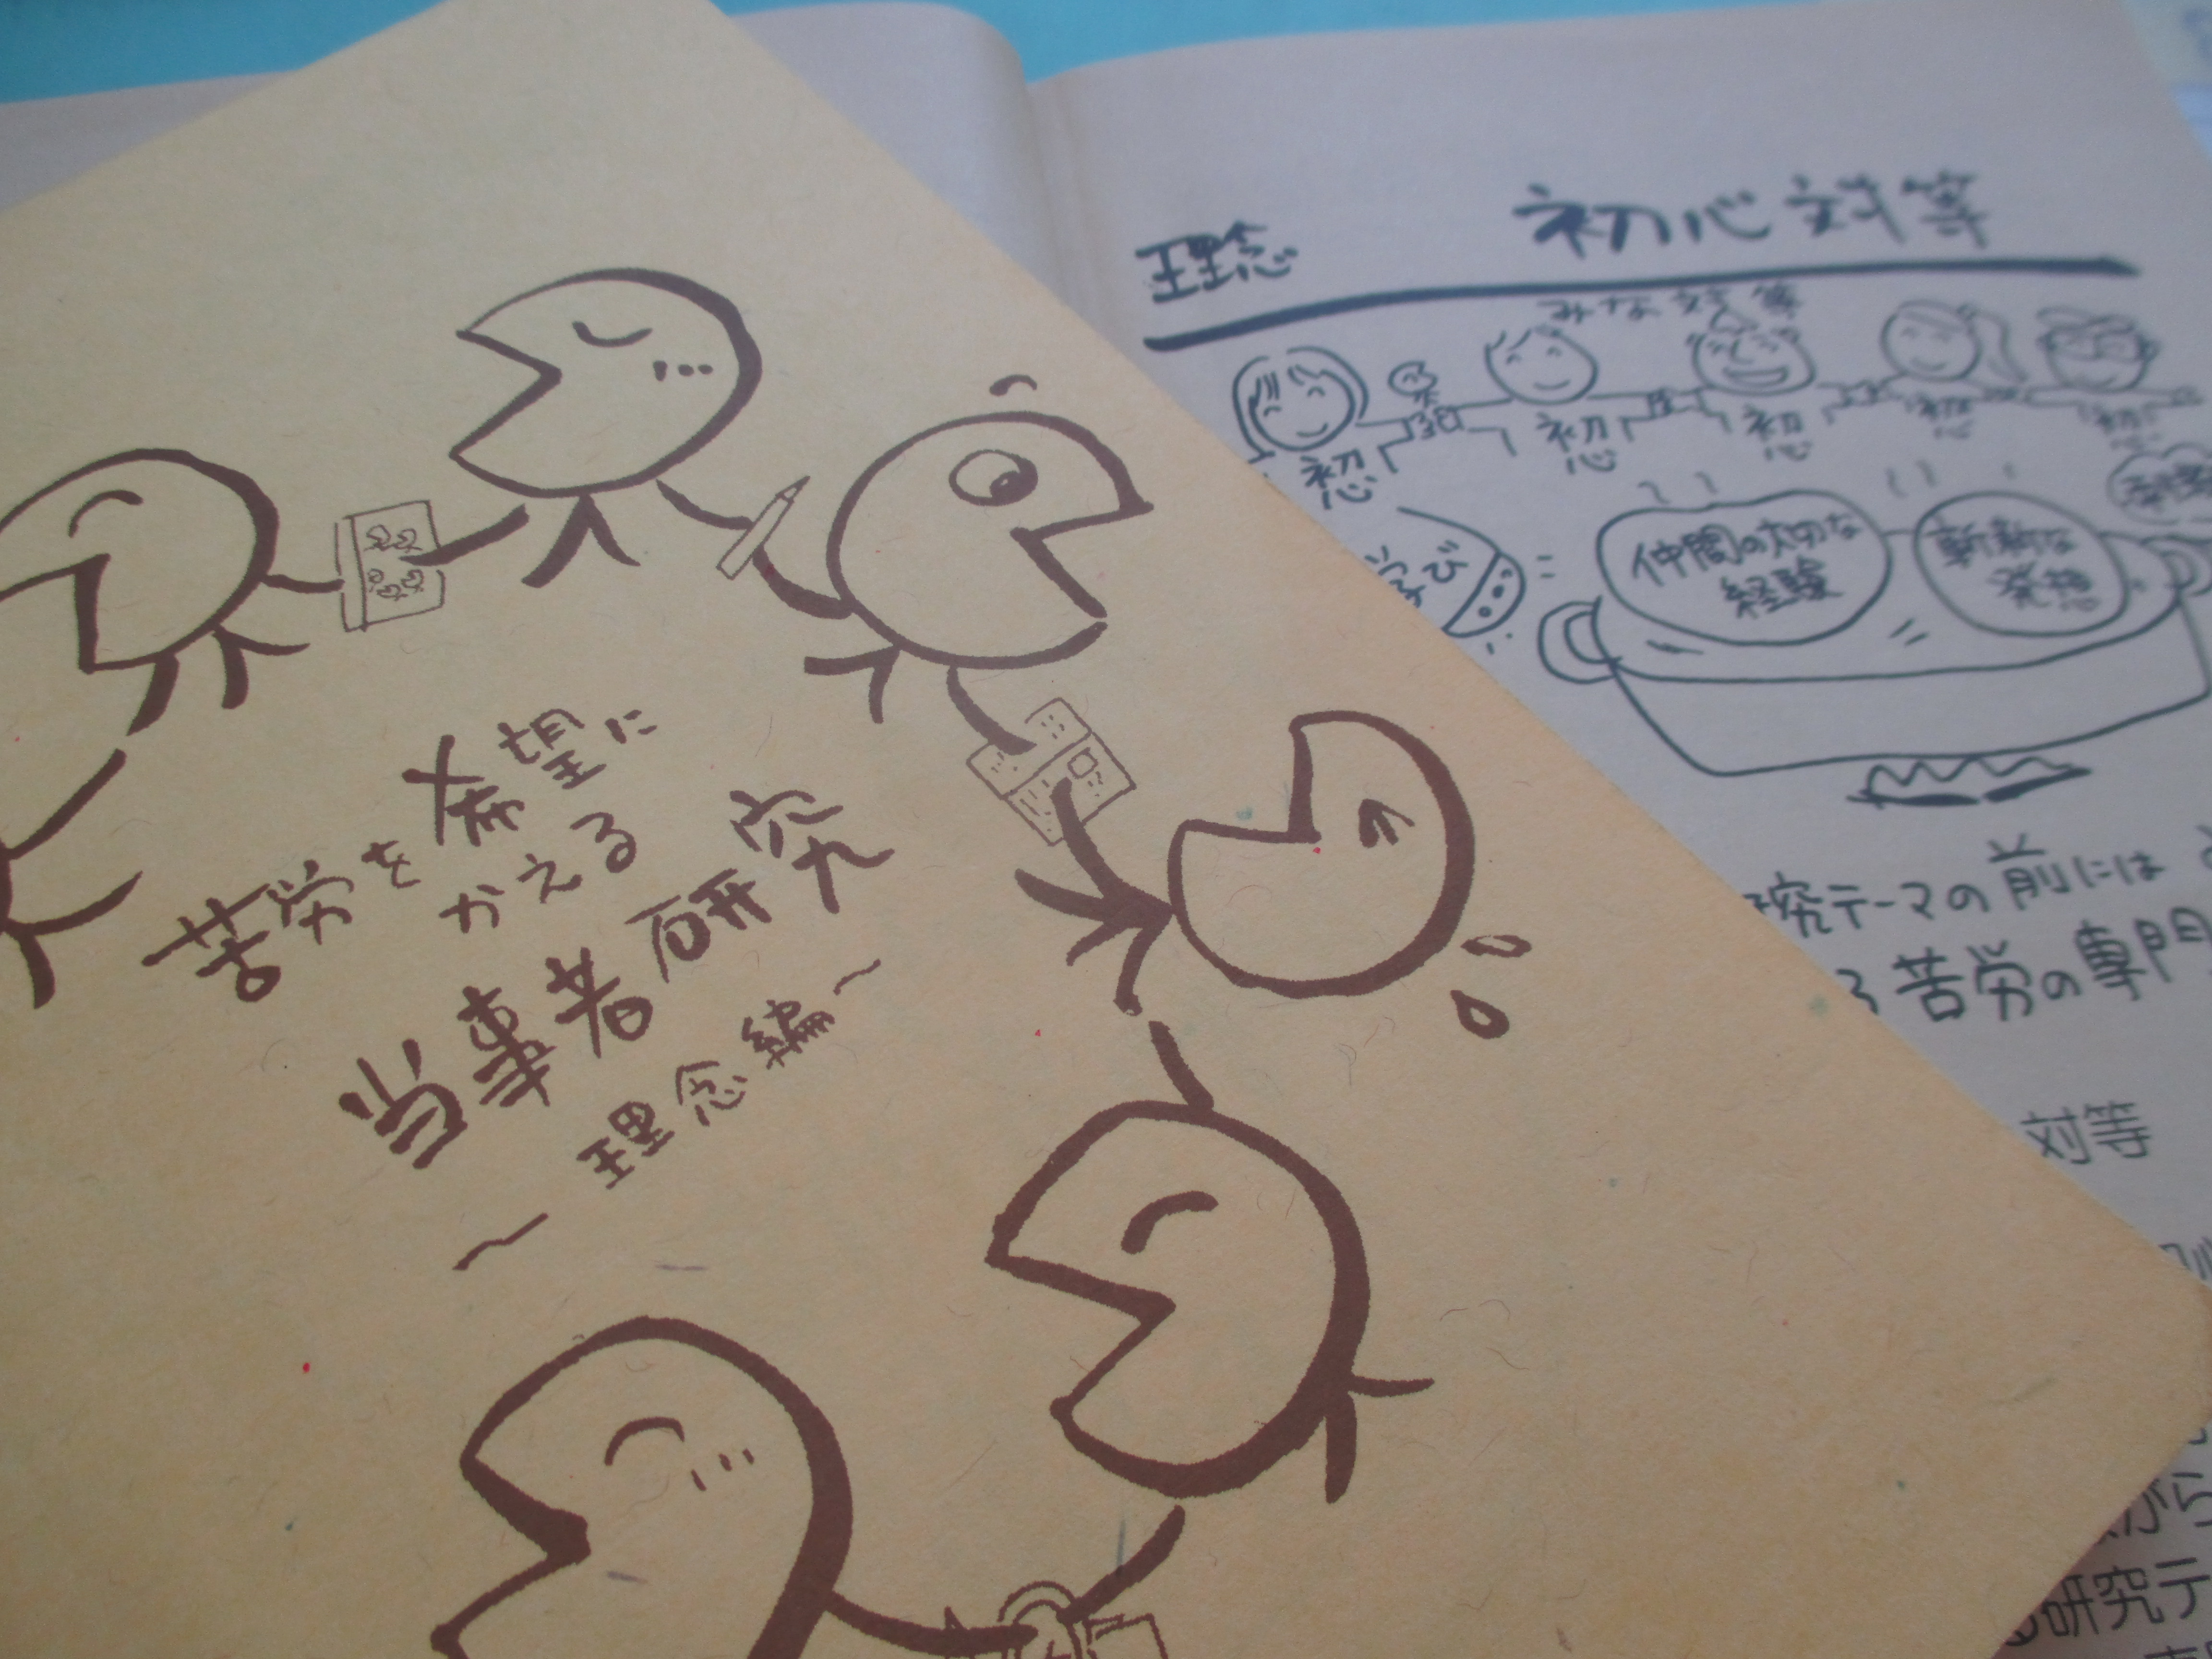 苦労を希望に
かえる
当事者研究
〜理念編〜
理念
初心対等
みな対等
初心
初心
初心
初心
初心
学び
仲間の大切な
経験
斬新な
発想
究テーマの前には
る苦労の専門
対等
から
研究テ